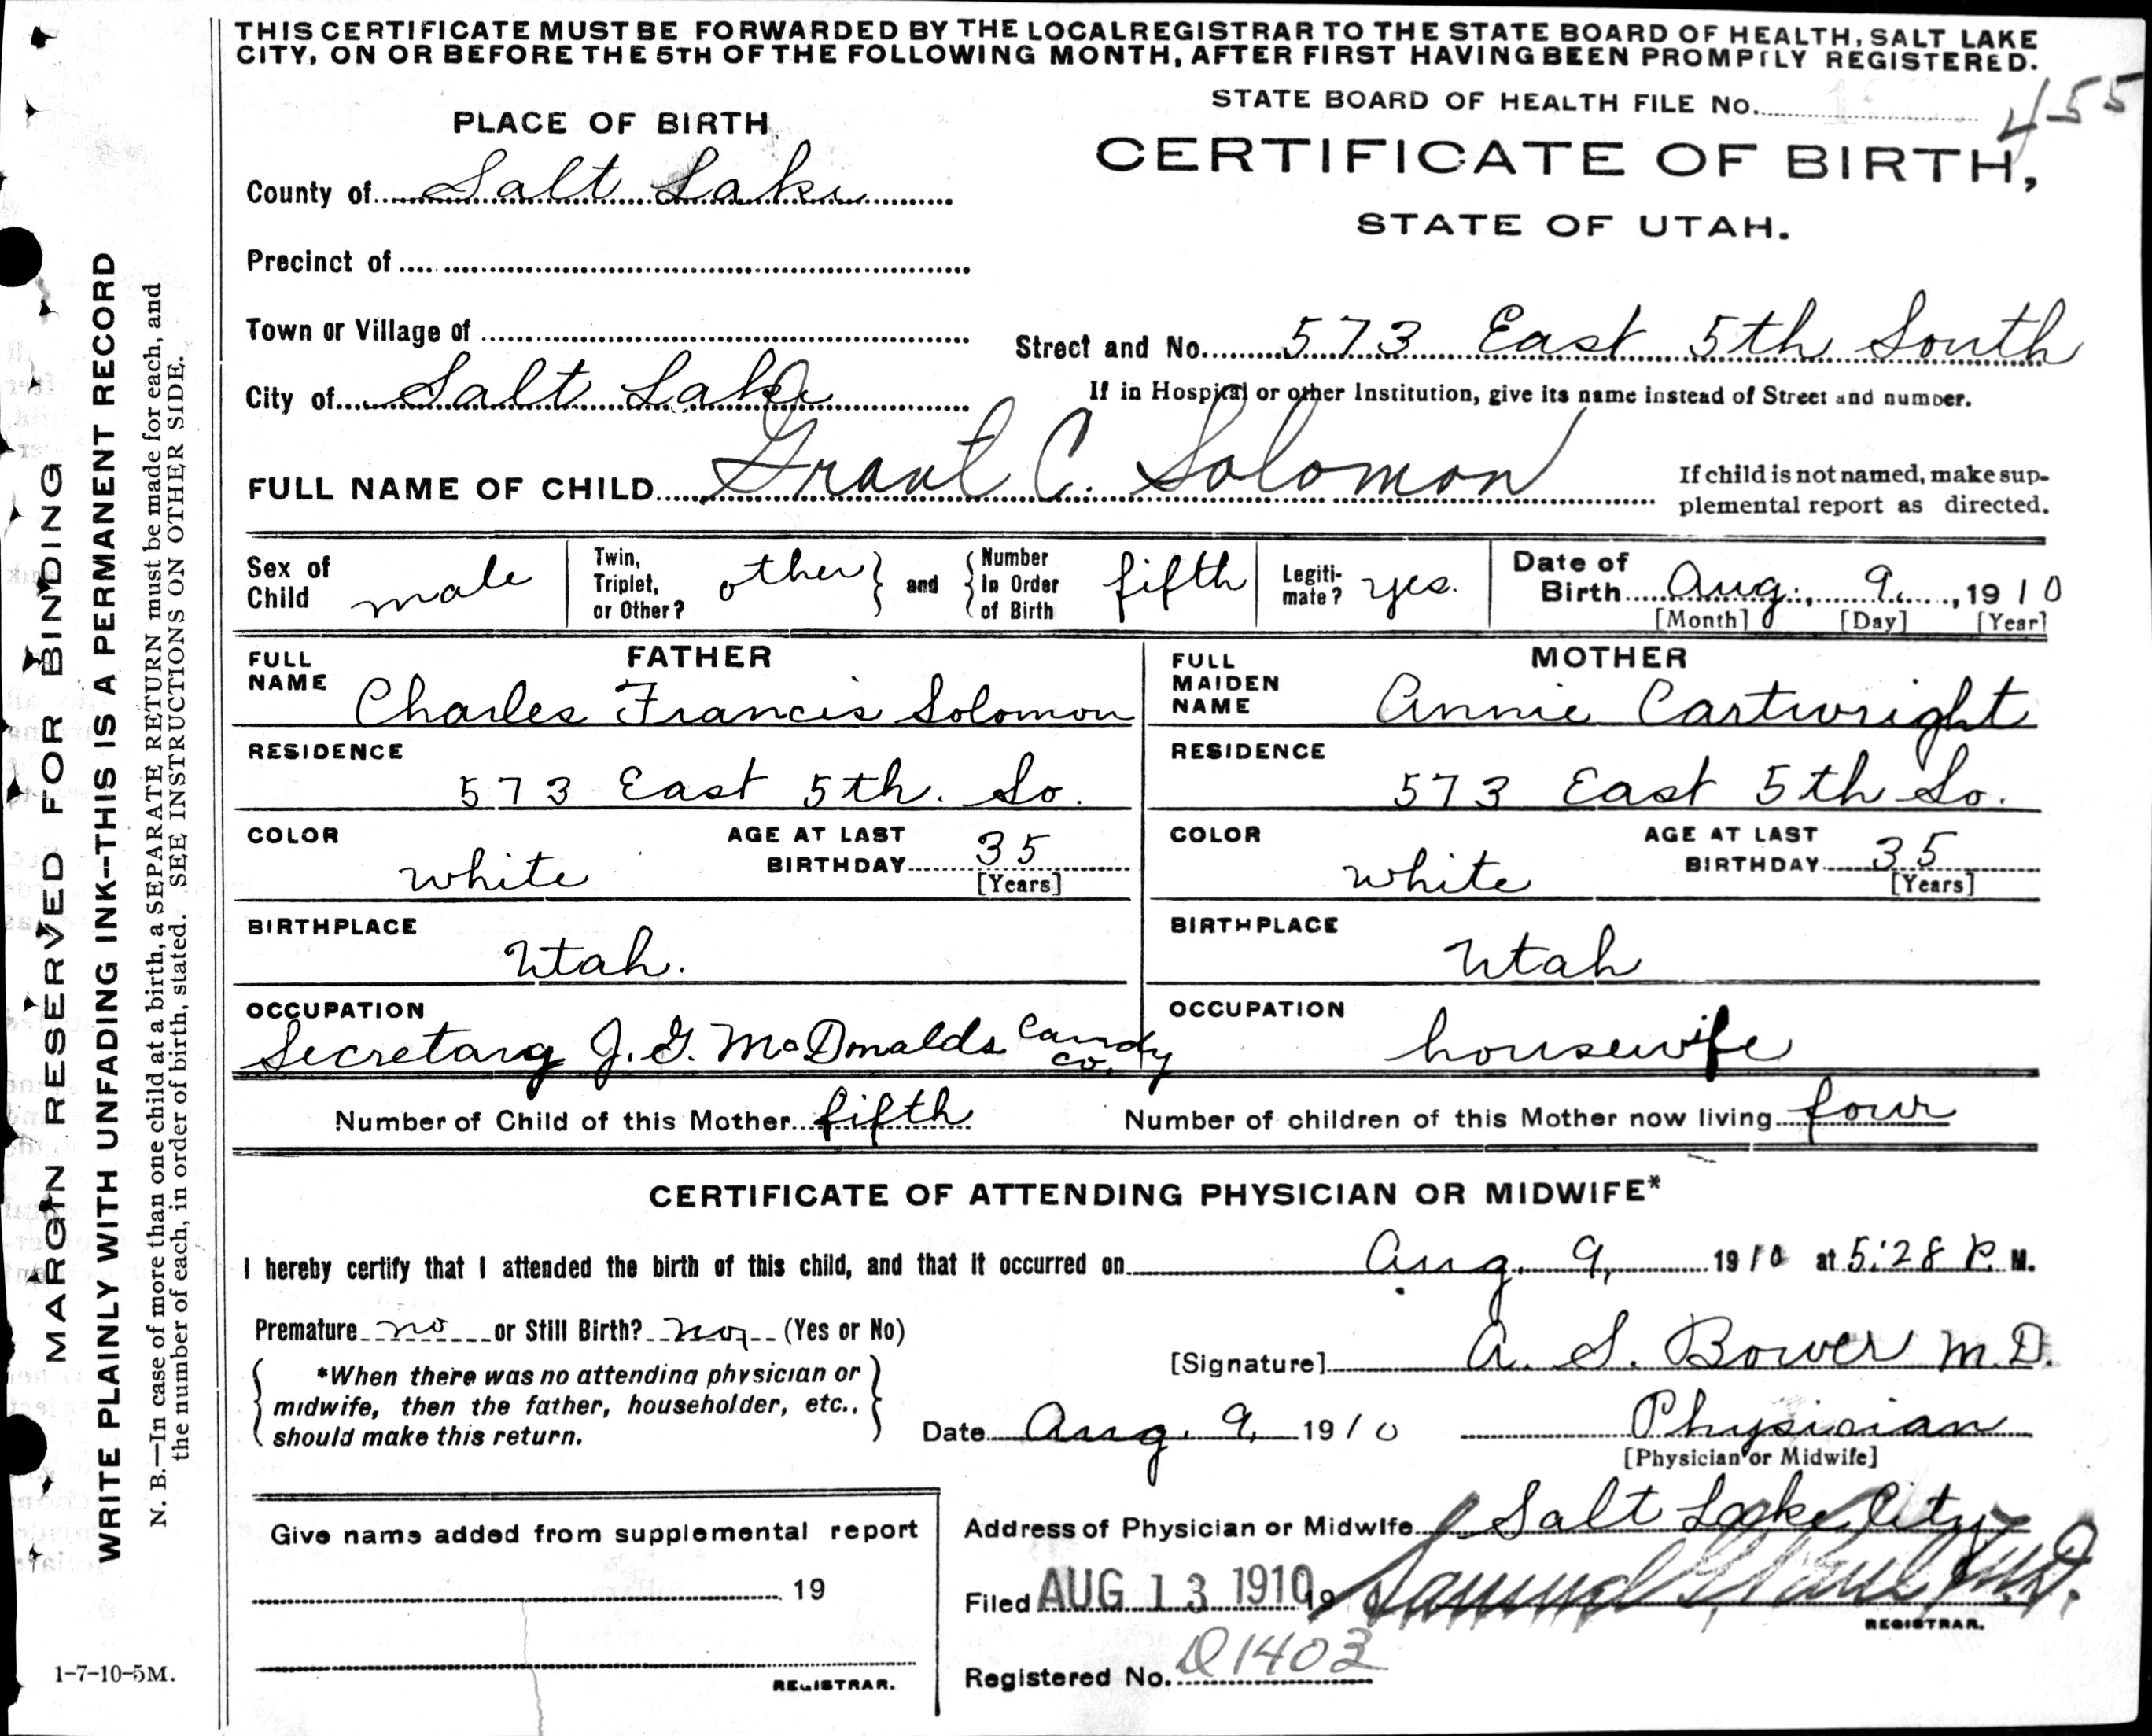 THIS CERTIFICATE MUST BE FORWARDED BY THE LOCAL REGISTRAR TO THE STATE BOARD OF HEALTH, SALT LAKE
CITY, ON OR BEFORE THE 5TH OF THE FOLLOWING MONTH, AFTER FIRST HAVING BEEN PROMPTLY REGISTERED.
STATE BOARD OF HEALTH FILE No. 455
PLACE OF BIRTH
CERTIFICATE OF BIRTH,
STATE OF UTAH.
County of Salt Lake
Precinct of
Town or Village of
Street and No. 573 East 5th South
City of Salt Lake
If in Hospital or other Institution, give its name instead of Street and number.
FULL NAME OF CHILD Grant C. Solomon
If child is not named, make sup-
plemental report as directed.
Sex of Child male
Twin, Triplet, or Other? other and Number In Order of Birth fifth
Legiti-mate? yes.
Date of Birth Aug. 9, 1910
[Month] [Day] [Year]
FATHER
FULL NAME Charles Francis Solomon
RESIDENCE
573 East 5th. So.
COLOR white
AGE AT LAST BIRTHDAY 35
[Years]
BIRTHPLACE
Utah.
OCCUPATION
Secretary J. G. McDonalds Candy Co.
MOTHER
FULL MAIDEN NAME Annie Cartwright
RESIDENCE
573 East 5th So.
COLOR white
AGE AT LAST BIRTHDAY 35
[Years]
BIRTHPLACE
Utah
OCCUPATION
housewife
Number of Child of this Mother fifth Number of children of this Mother now living four
CERTIFICATE OF ATTENDING PHYSICIAN OR MIDWIFE*
I hereby certify that I attended the birth of this child, and that it occurred on Aug. 9, 1910 at 5:28 P. M.
Premature no or Still Birth? no (Yes or No)
[Signature] A. S. Bower M.D.
*When there was no attending physician or
midwife, then the father, householder, etc.,
should make this return.
Date Aug. 9, 1910 Physician
[Physician or Midwife]
Give name added from supplemental report
19
REGISTRAR.
Address of Physician or Midwife Salt Lake City
Filed AUG 13 1910 19 Samuel G. Paul, M.D.
REGISTRAR.
Registered No. 1403
MARGIN RESERVED FOR BINDING
WRITE PLAINLY WITH UNFADING INK--THIS IS A PERMANENT RECORD
N. B.—In case of more than one child at a birth, a SEPARATE RETURN must be made for each, and
the number of each, in order of birth, stated. SEE INSTRUCTIONS ON OTHER SIDE.
1-7-10-5M.